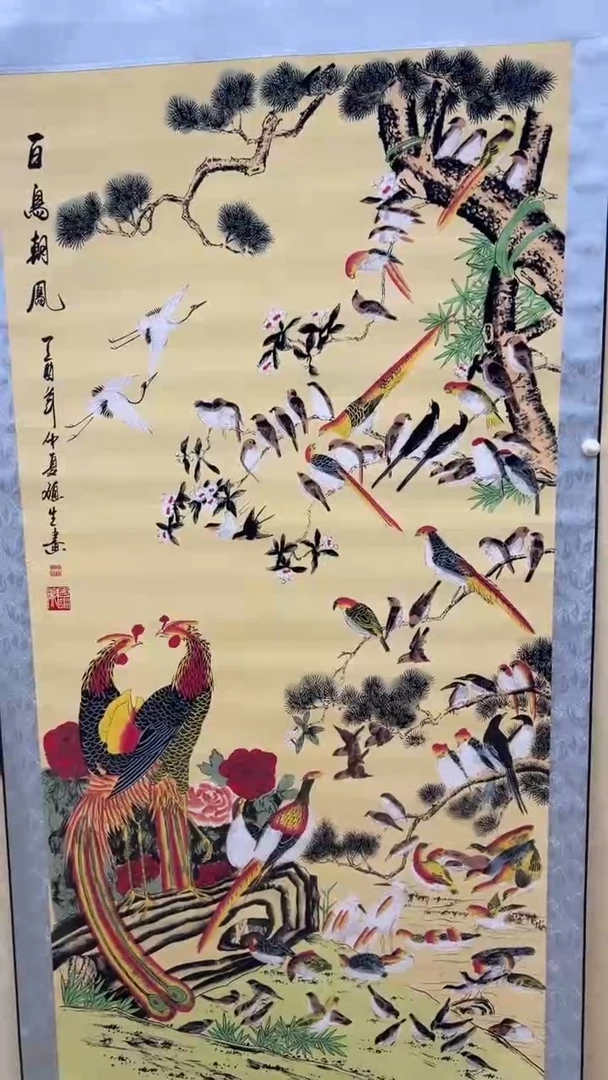 百鳥朝鳳
丁酉年仲夏穎生畫